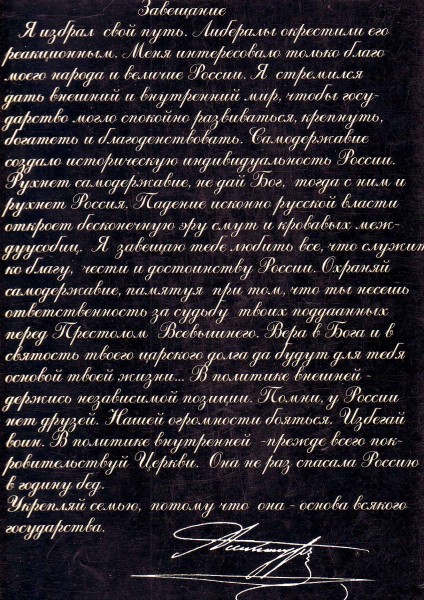 Завещание
Я избрал свой путь. Либералы окрестили его
реакционным. Меня интересовало только благо
моего народа и величие России. Я стремился
дать внешний и внутренний мир, чтобы госу-
дарство могло спокойно развиваться, крепнуть,
богатеть и благоденствовать. Самодержавие
создало историческую индивидуальность России.
Рухнет самодержавие, не дай Бог, тогда с ним и
рухнет Россия. Падение исконно русской власти
откроет бесконечную эру смут и кровавых меж-
дуусобиц. Я завещаю тебе любить все, что служит
ко благу, чести и достоинству России. Охраняй
самодержавие, памятуя при том, что ты несешь
ответственность за судьбу твоих подданных
перед Престолом Всевышнего. Вера в Бога и в
святость твоего царского долга да будут для тебя
основой твоей жизни... В политике внешней -
держись независимой позиции. Помни, у России
нет друзей. Нашей огромности боятся. Избегай
воин. В политике внутренней -прежде всего пок-
ровительствуй Церкви. Она не раз спасала Россию
в годину бед.
Укрепляй семью, потому что она - основа всякого
государства.